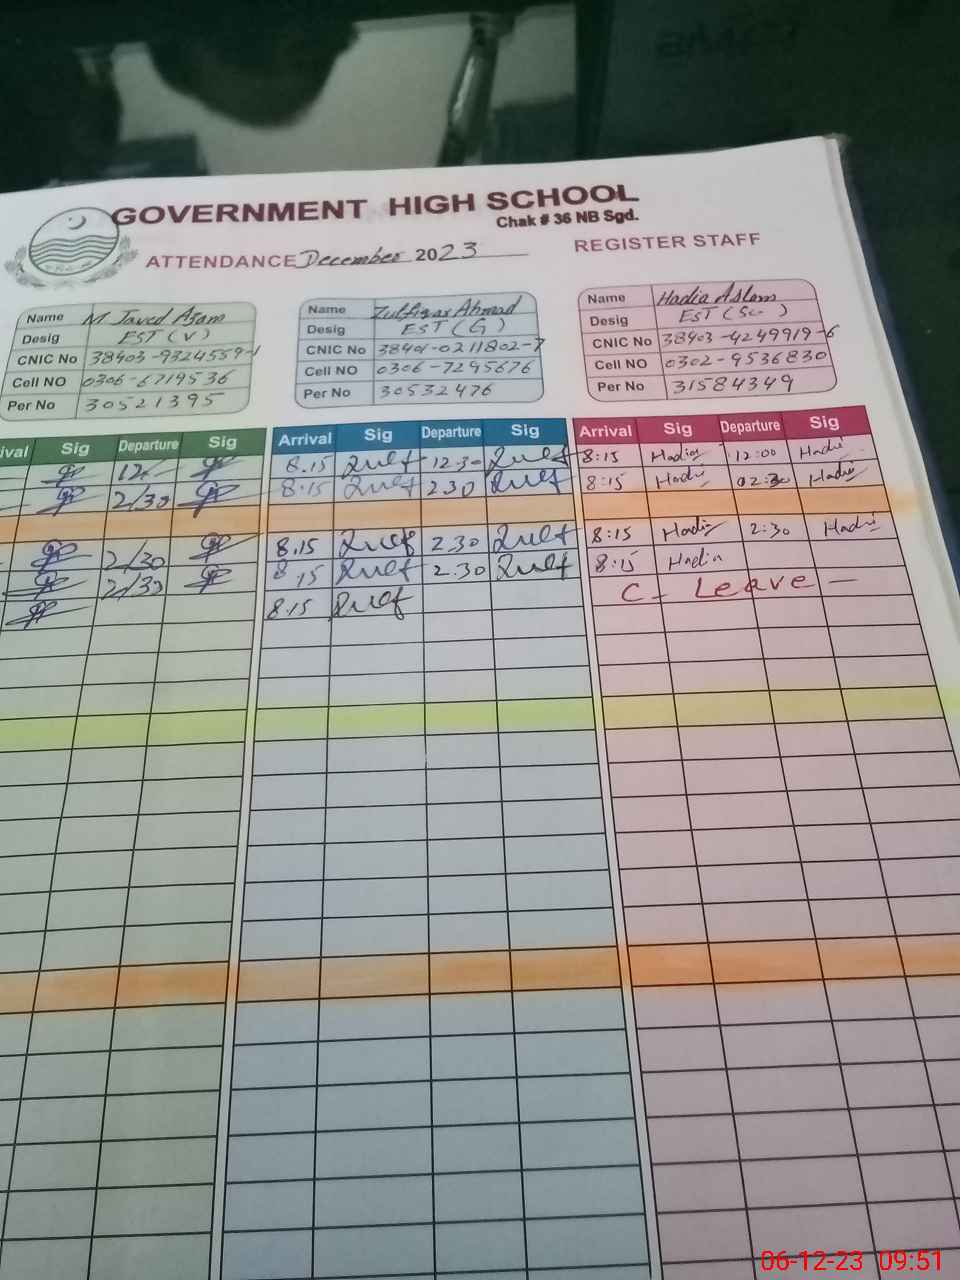 GOVERNMENT HIGH SCHOOL
Chak # 36 NB Sgd.
ATTENDANCE December 2023 REGISTER STAFF
Name M Javed Azam
Desig EST (V)
CNIC No 38403-9324559-1
Cell NO 0306-6719536
Per No 30521395
Name Zulfiqar Ahmad
Desig EST (G)
CNIC No 38401-0211802-7
Cell NO 0306-7295676
Per No 30532476
Name Hadia Aslam
Desig EST (Sc)
CNIC No 38403-4249919-6
Cell NO 0302-9536830
Per No 31584349
ival Sig Departure Sig Arrival Sig Departure Sig Arrival Sig Departure Sig
12/ 8.15 Zulf 12.30 Zulf 8:15 Hadia 12:00 Hadi
2/30 8:15 Zulf 2.30 Zulf 8:15 Hadi 02:30 Hadi
2/30 8.15 Zulf 2.30 Zulf 8:15 Hadia 2:30 Hadi
2/30 8.15 Zulf 2.30 Zulf 8:15 Hadia
8.15 Zulf C- Leave -
06-12-23 09:51